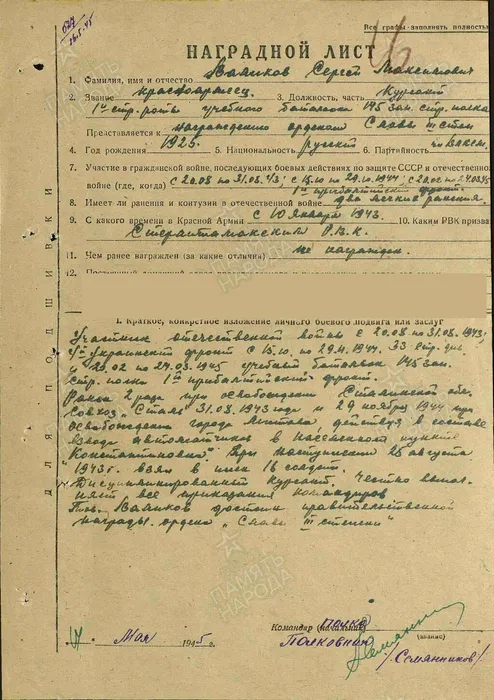 Все графы заполнять полностью
НАГРАДНОЙ ЛИСТ
1. Фамилия, имя и отчество Валиков Сергей Максимович
2. Звание красноармеец 3. Должность, часть Курсант
1ой стр. роты учебного батальона 145 зап. стр. полка
Представляется к награждению орденом Славы III степ
4. Год рождения 1925 5. Национальность русский 6. Партийность чл. ВЛКСМ
7. Участие в гражданской войне, последующих боевых действиях по защите СССР и отечественной
войне (где, когда) с 20.08 по 31.08.43; с 15.10 по 29.11.1944 с 20.02 по 24.03.45
1ый прибалтийский фронт.
8. Имеет ли ранения и контузии в отечественной войне два легких ранения
9. С какого времени в Красной Армии с 10 января 1943. 10. Каким РВК призван
Стерлитамакским Р.В.К.
11. Чем ранее награжден (за какие отличия) не награжден.
12.
I. Краткое, конкретное изложение личного боевого подвига или заслуг
Участник отечественной войны с 20.08 по 31.08.1943г
Украинский фронт с 15.10. по 29.11.1944. 33 стр. див.
и 20.02 по 24.03.1945 учебный батальон 145 зап.
стр. полка 1ый прибалтийский фронт.
Ранен 2 раза при освобождении Сталинской обл.
совхоз „Сталь" 31.08.1943 года и 29 ноября 1944 при
освобождении города Митава, действуя в составе
взвода автоматчиков в населенном пункте
„Константиновка". При наступлении 28 августа
1943г. взял в плен 16 солдат.
Дисциплинированный курсант. Честно выпол-
няет все приказания командиров
Тов. Валиков достоин правительственной
награды ордена „Славы III степени"
Командир (начальник) полка
Полковник (звание)
/Семянников/
" Мая 1945 г.
ДЛЯ ПОДШИВКИ
ПАМЯТЬ НАРОДА